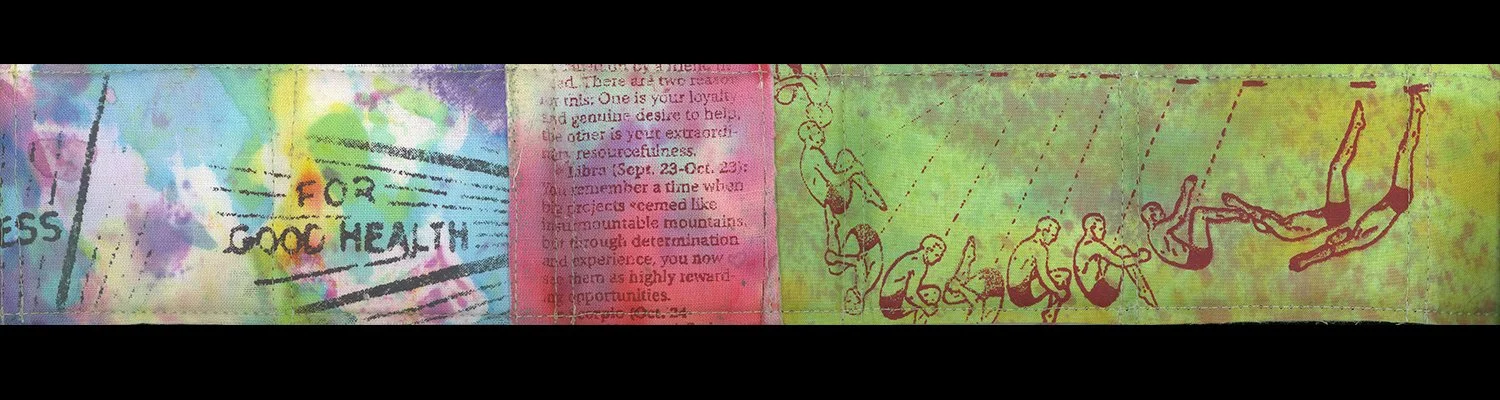 ESS
FOR
GOOD HEALTH
by a friend in
ed. There are two reasons
for this: One is your loyalty
and genuine desire to help,
the other is your extraordi-
nary resourcefulness.
Libra (Sept. 23-Oct. 23):
You remember a time when
big projects seemed like
insurmountable mountains,
but through determination
and experience, you now
see them as highly reward-
ing opportunities.
Scorpio (Oct. 24-